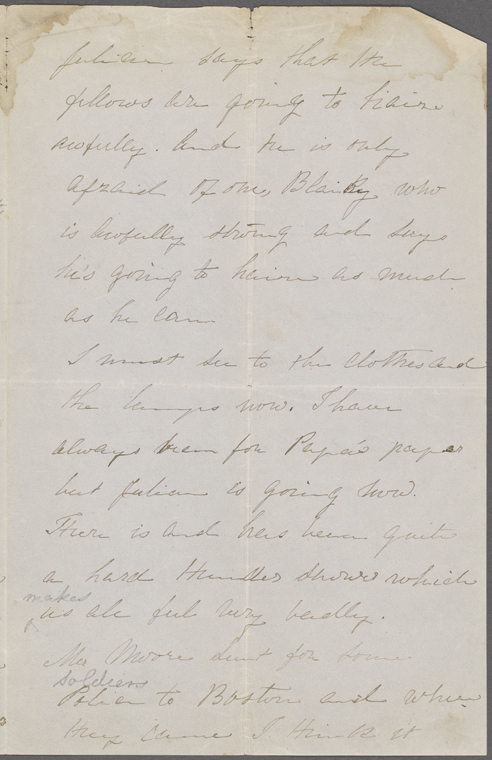 Julian says that the
fellows are going to haze
awfully. And he is only
afraid of one, Blaiky who
is awfully strong and says
he's going to haze as much
as he can
I must see to the clothes and
the lamps now. I have
always been for Papa's paper
but Julian is going now.
There is and has been quite
a hard thunder shower which
makes
us all feel very badly.
Mr Moore sent for some
soldiers
Police to Boston and when
they came I think it